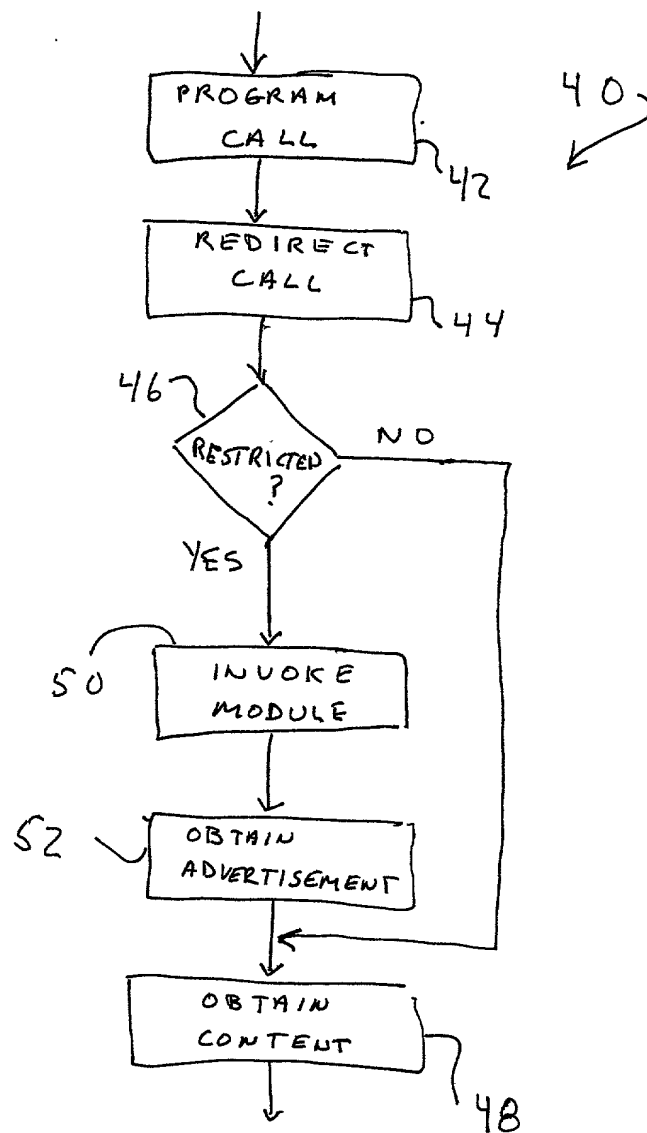 PROGRAM
CALL
40
42
REDIRECT
CALL
44
46
RESTRICTED
?
NO
YES
50
INVOKE
MODULE
52
OBTAIN
ADVERTISEMENT
OBTAIN
CONTENT
48